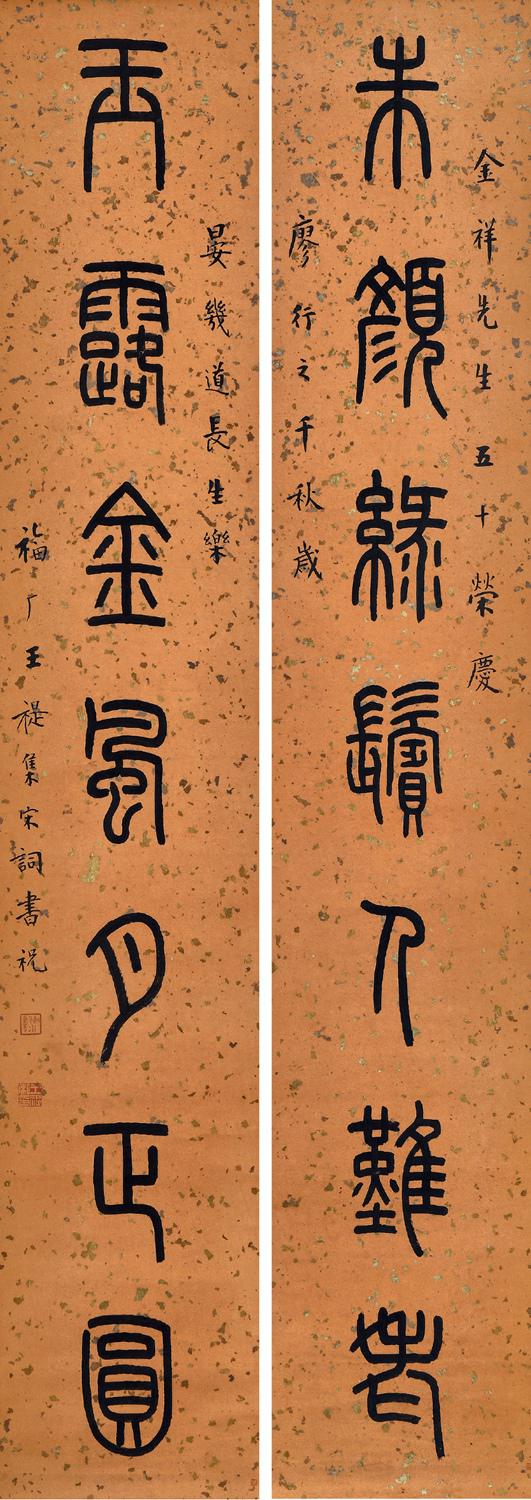 金祥先生五十榮慶
朱顏綠鬢人難老
廖行之千秋歲
晏幾道長生樂
玉露金風月正圓
福厂王禔集宋詞書祝